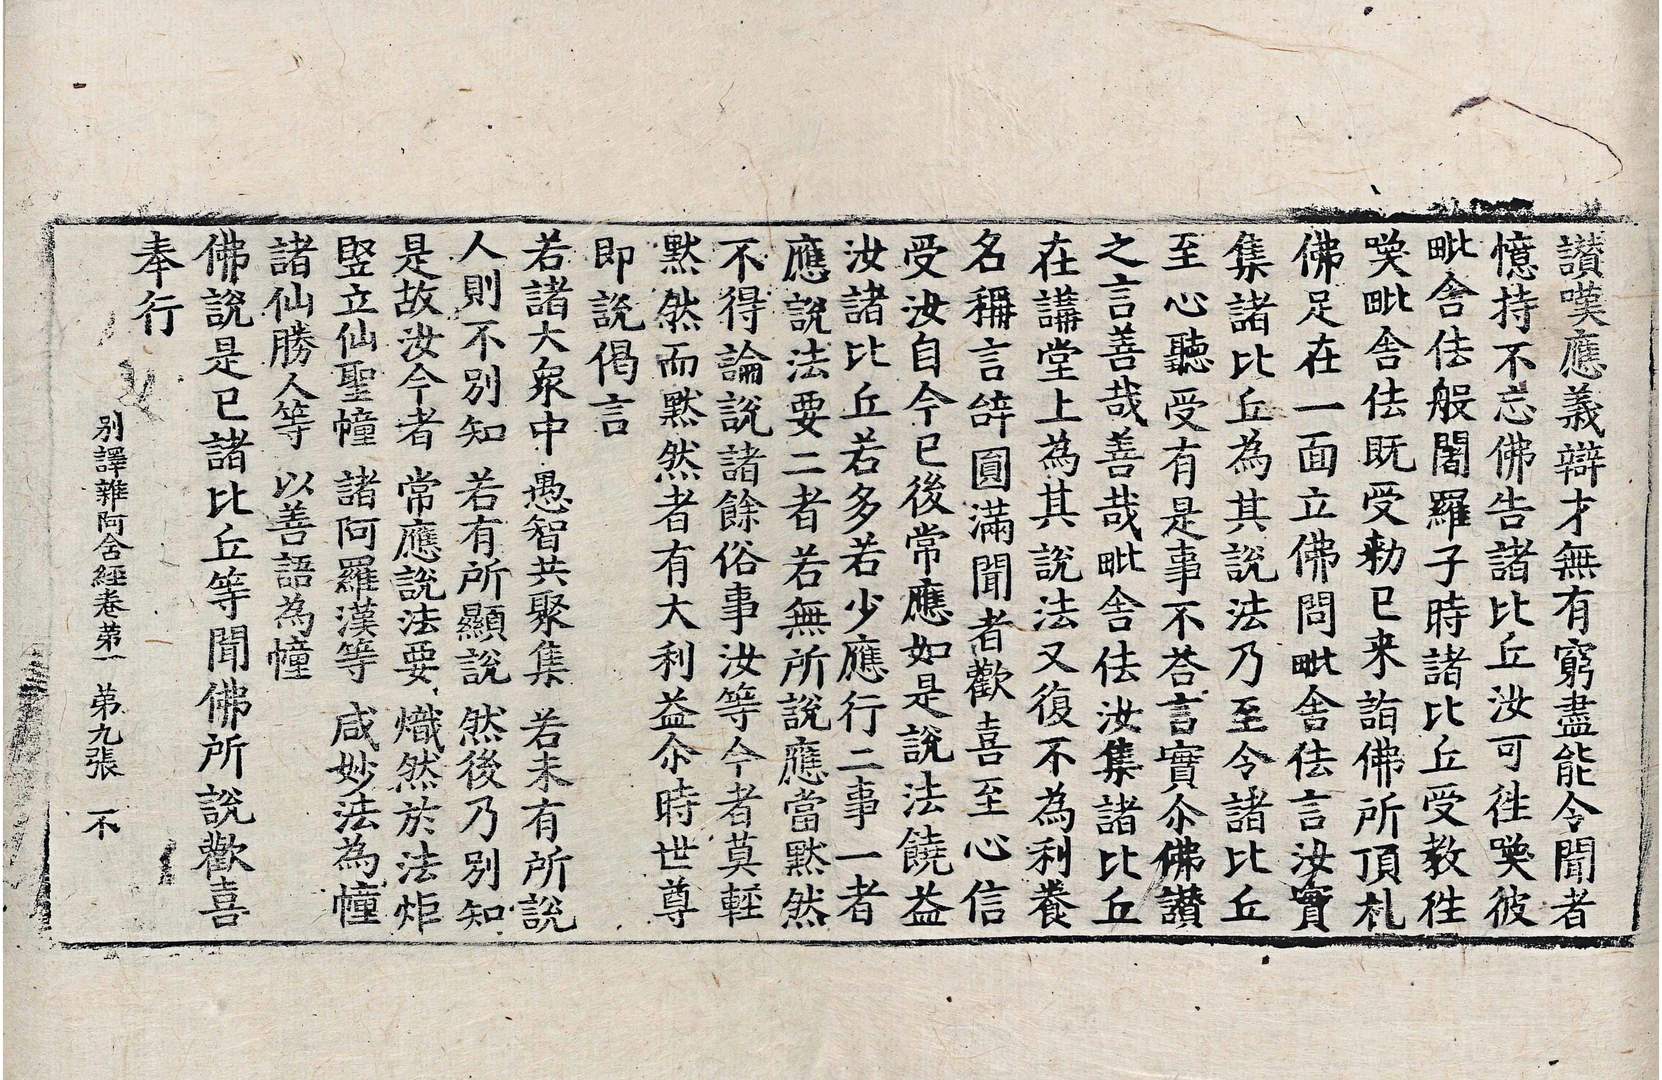 讃嘆應義辯才無有窮盡能令聞者
憶持不忘佛告諸比丘汝可徃喚彼
毗舍佉般闍羅子時諸比丘受教徃
喚毗舍佉旣受勑已来詣佛所頂札
佛足在一面立佛問毗舍佉言汝實
集諸比丘為其說法乃至令諸比丘
至心聽受有是事不荅言實尒佛讃
之言善哉善哉毗舍佉汝集諸比丘
在講堂上為其說法又復不為利養
名稱言辝圓滿聞者歡喜至心信
受汝自今已後常應如是說法饒益
汝諸比丘若多若少應行二事一者
應說法要二者若無所說應當默然
不得論說諸餘俗事汝等今者莫輕
默然而默然者有大利益尒時世尊
即說偈言
若諸大衆中 愚智共聚集 若未有所說
人則不別知 若有所顯說 然後乃別知
是故汝今者 常應說法要 熾然於法炬
竪立仙聖幢 諸阿羅漢等 咸妙法為幢
諸仙勝人等 以善語為幢
佛說是已諸比丘等聞佛所說歡喜
奉行
別譯雜阿含經卷苐一 苐九張 不